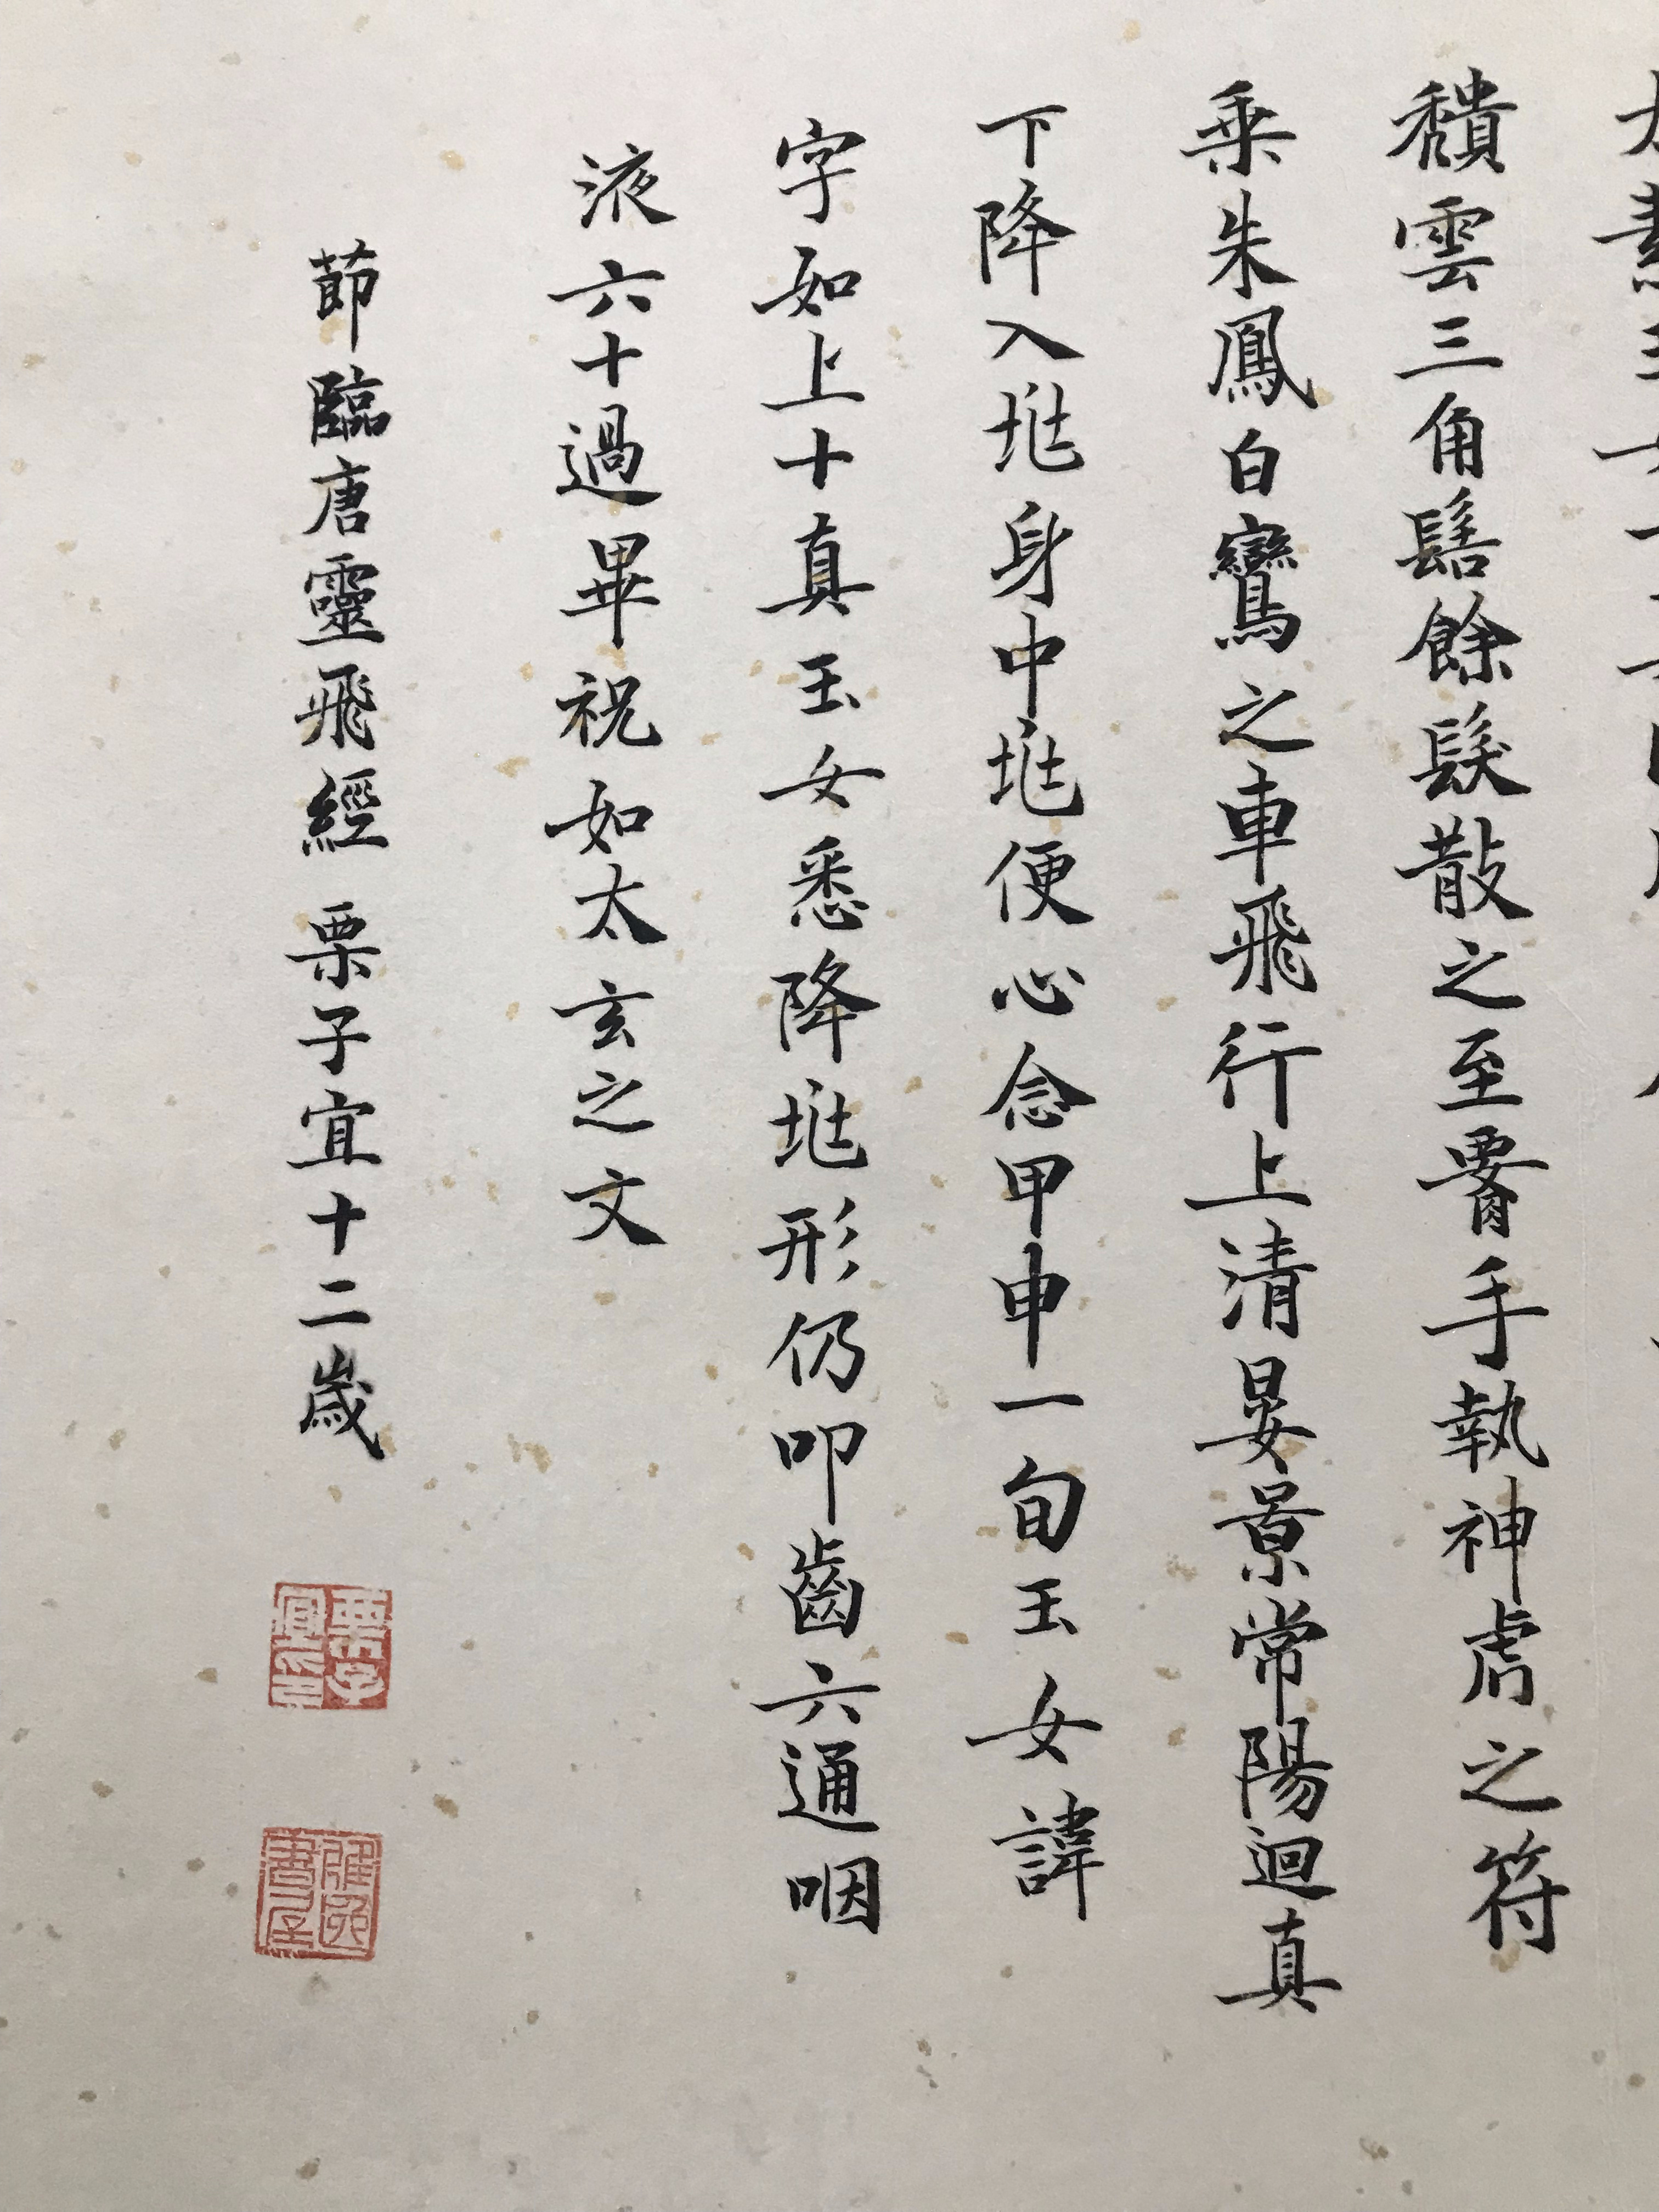 穨雲三角髻餘髮散之至腰手執神虎之符
乘朱鳳白鸞之車飛行上清晏景常陽迴真
下降入兆身中兆便心念甲申一旬玉女諱
字如上十真玉女悉降兆形仍叩齒六通咽
液六十過畢祝如太玄之文
節臨唐靈飛經 栗子宜十二歲
栗子宜印
書屋